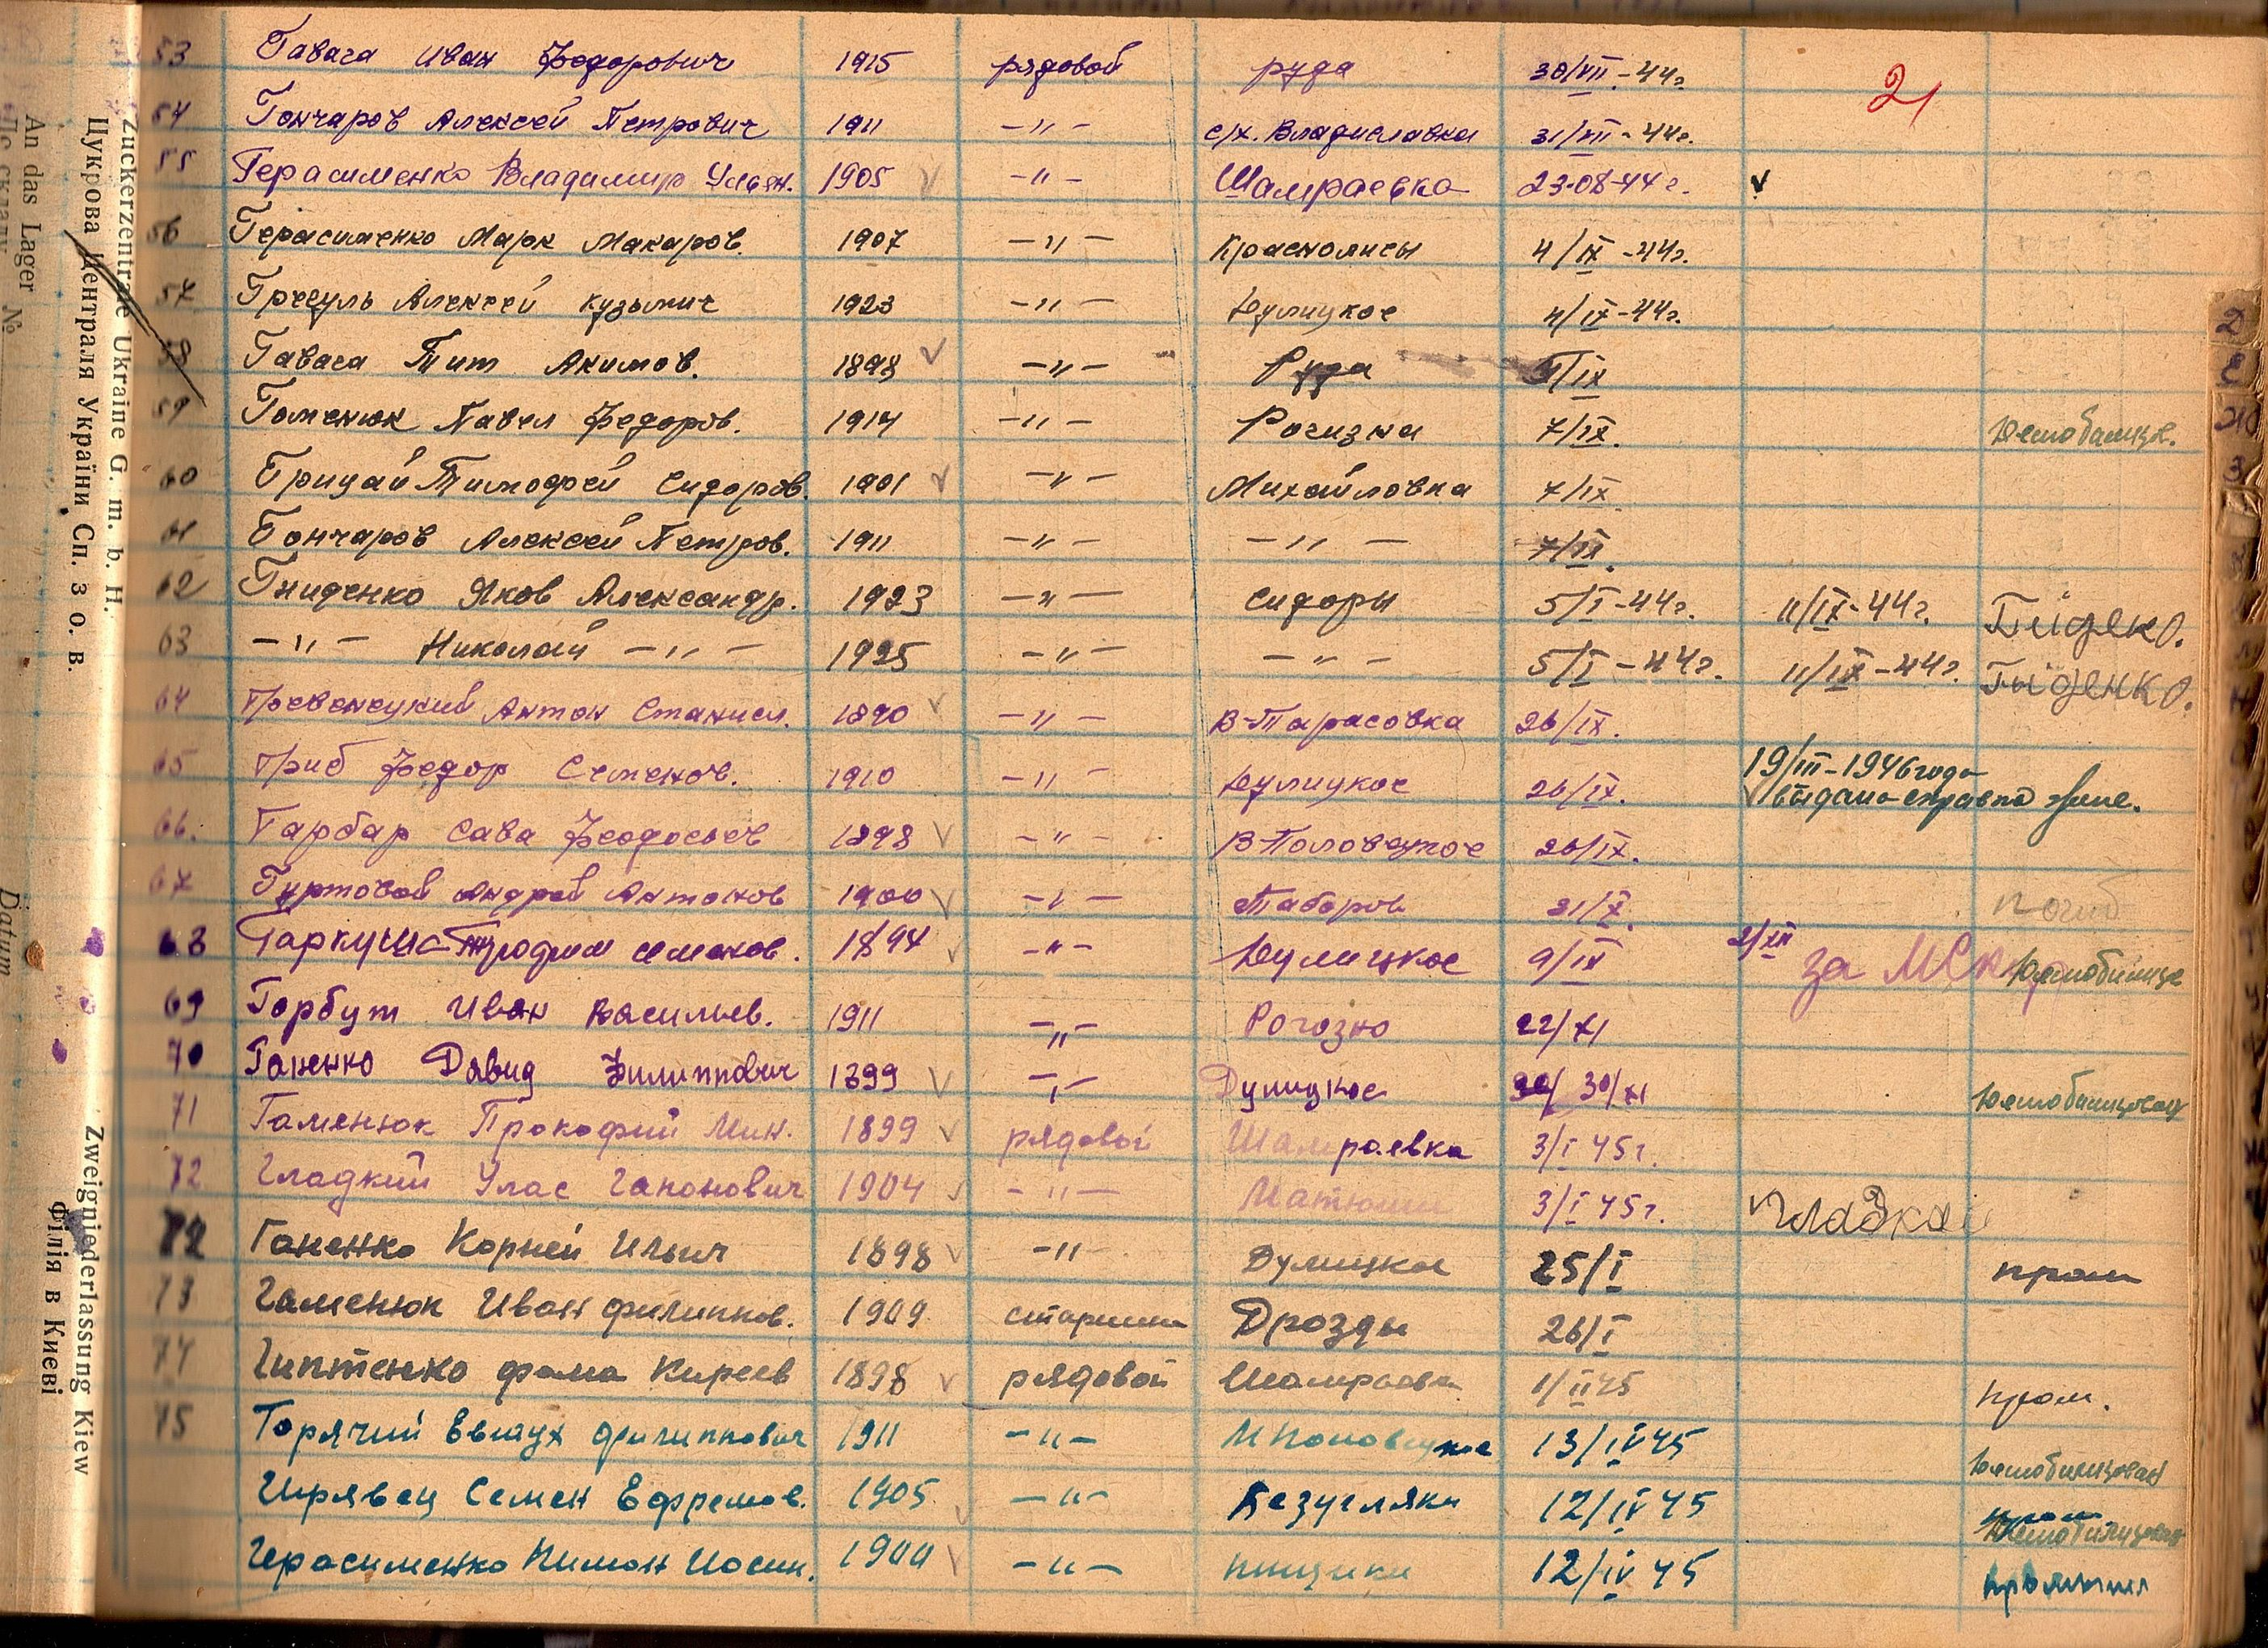 21
53 Гавага Иван Федорович 1915 рядовой руда 30/VII-44г.
54 Гончаров Алексей Петрович 1911 -"- с/х. Владиславка 31/VIII-44г.
55 Герасименко Владимир Ульян. 1905 v -"- Шамраевка 23-08-44г. v
56 Герасименко Марк Макаров. 1907 -"- Краснолисы 4/IX-44г.
57 Грегуль Алексей Кузьмич 1923 -"- Дулицкое 4/IX-44г.
58 Гавага Тит Акимов. 1898 v -"- Руда /IX
59 Гоменюк Павел Федоров. 1914 -"- Рогизна 7/IX. Демобилизов.
60 Грицай Тимофей Сидоров. 1901 v -"- Михайловка 7/IX
61 Гончаров Алексей Петров. 1911 -"- -"- 7/IX.
62 Гниденко Яков Александр. 1923 -"- Сидоры 5/I-44г. 11/IX-44г.
63 -"- Николай -"- 1925 -"- -"- 5/I-44г. 11/IX-44г.
64 Антон Станисл. 1890 v -"- В-Тарасовка 26/IX.
65 Гриб Федор Семенов. 1910 -"- Дулицкое 26/IX. 19/III-1946 года
v выдана справка жене.
66. Гарбар Сава Феодосьев 1898 v -"- В-Половецкое 26/IX.
67 Гуртовой Андрей Антонов 1900 v -"- Таборов 21/X. погиб
68 Гаркуша Трофим семенов. 1894 v -"- Дулицкое 9/IX 2/XII за Демобилизо
69 Горбут Иван Васильев. 1911 -"- Рогозно 22/XI
70 Ганенко Давид Филиппович 1899 v -"- Дулицкое 30/XI Демобилизован
71 Гаменюк Прокофий Мин. 1899 v рядовой Шамраевка 3/I 45г.
72 Гладкий Улас Гапонович 1904 v -"- Матюши 3/I 45г. Гладкий
72 Ганенко Корней Ильич 1898 v -"- Дулицкое 25/I пром
73 Гаменюк Иван филиппов. 1909 старшина Дрозды 26/I
74 Гиптенко фома Киреев 1898 v рядовой Шамраевка 1/II 45 пром.
75 Горячий Евтух филиппович 1911 -"- М Половецкое 13/IV 45 Демобилизован
Гирявец Семен Ефремов. 1905 v -"- Безугляки 12/IV 45 пром Демобилизован
Герасименко Пимон Иосип. 1900 v -"- пищики 12/IV 45
Zuckerzentrale Ukraine G. m. b. H.
Цукрова Централя України Сп. з о. в.
An das Lager №
Zweigniederlassung Kiew
Філія в Києві
Datum